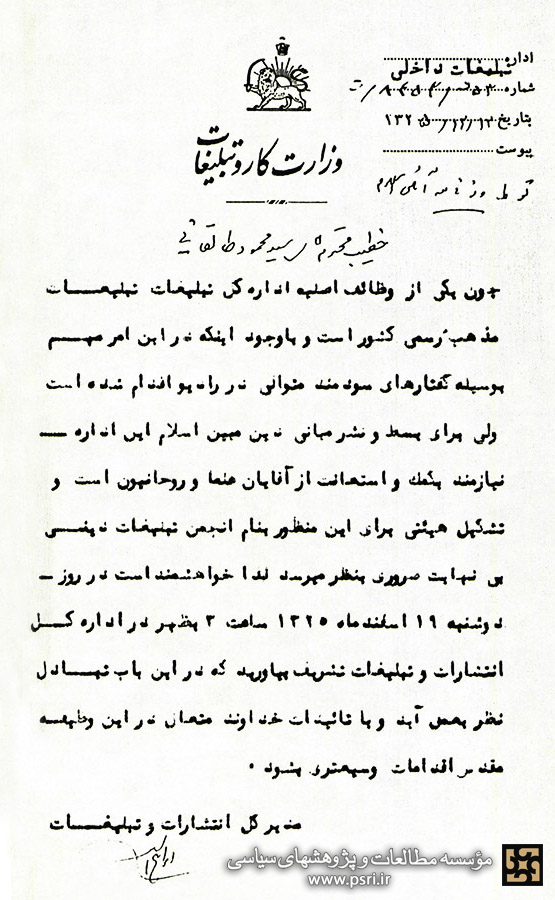 اداره تبلیغات داخلی
شماره
بتاریخ ۱۳۲۵/۱۲/۱۳
پیوست
وزارت کار و تبلیغات
توسط روزنامه
خطیب محترم آقای سید محمود طالقانی
چون یکی از وظائف اصلیه اداره کل تبلیغات تبلیغات
مذهب رسمی کشور است و باوجود اینکه در این امر مهم
بوسیله گفتارهای سودمند متوالی در رادیو اقدام شده است
ولی برای بسط و نشر مبانی دین مبین اسلام این اداره
نیازمند بکمک و استعانت از آقایان علما و روحانیون است و
تشکیل هیئتی برای این منظور بنام انجمن تبلیغات دینی
بی نهایت ضروری بنظر میرسد لذا خواهشمند است در روز
دوشنبه ۱۹ اسفندماه ۱۳۲۵ ساعت ۳ بظهر در اداره کل
انتشارات و تبلیغات تشریف بیاورید که در این باب تبادل
نظر بعمل آید و با تائیدات خداوند متعال در این وظیفه
مقدس اقدامات وسیعتری بشود .
مدیر کل انتشارات و تبلیغات
مؤسسه مطالعات و پژوهشهای سیاسی
www.psri.ir